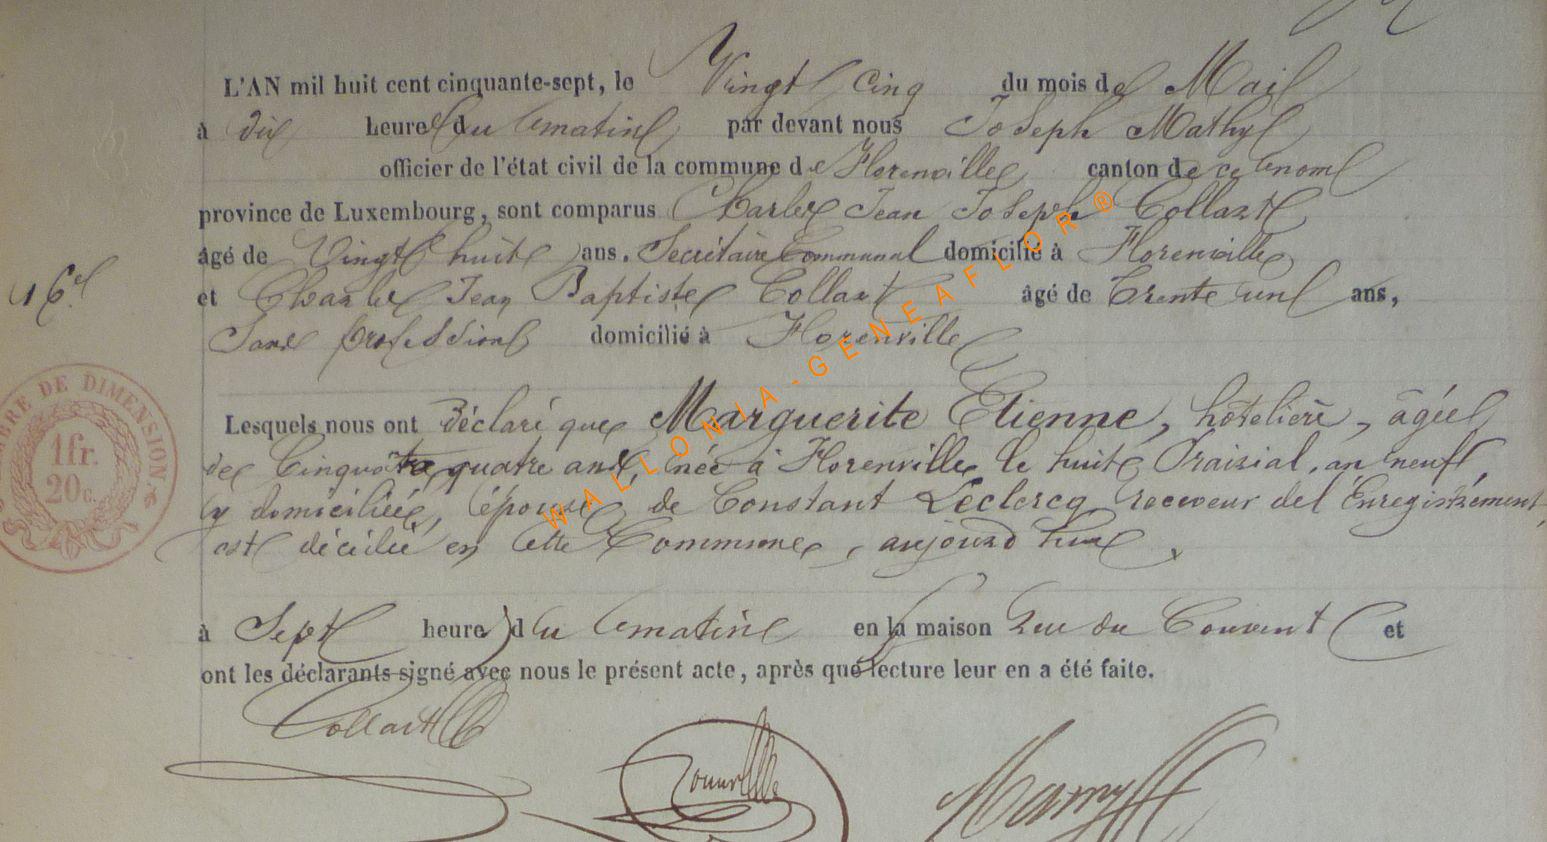 L'AN mil huit cent cinquante-sept, le Vingt Cinq du mois de Mai
à dix heures du matin par devant nous Joseph Mathy
officier de l'état civil de la commune de Florenville canton de ce nom
province de Luxembourg, sont comparus Charles Jean Joseph Collart
âgé de Vingt huit ans. Secrétaire Communal domicilié à Florenville
et Charles Jean Baptiste Collart âgé de Trente un ans,
16e
Sans profession domicilié à Florenville
Lesquels nous ont déclaré que Marguerite Etienne, hôtelière, âgée
de Cinquante quatre ans, née à Florenville le huit Praizial, an neuf,
y domiciliée, épouse de Constant Leclercq, receveur de l'Enregistrement,
est décédée en cette Commune, aujourd'hui,
à Sept heures du matin en la maison Rue du Couvent et
ont les déclarants signé avec nous le présent acte, après que lecture leur en a été faite.
Collart
TIMBRE DE DIMENSION.
1fr.
20c.
WALLONIA-GENEAFLOR®